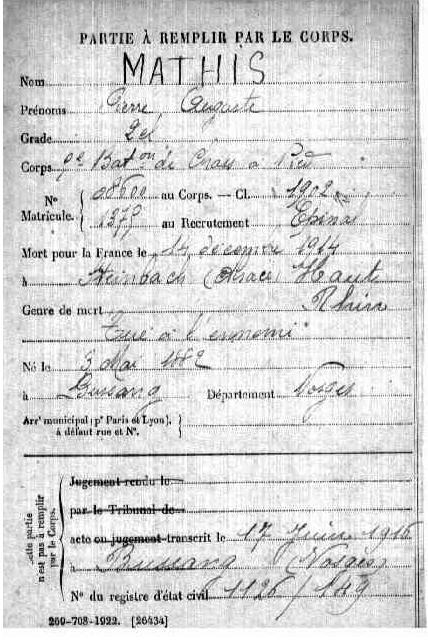 PARTIE À REMPLIR PAR LE CORPS.
Nom MATHIS
Prénoms Pierre Auguste
Grade 2e cl
Corps Baton de Chass à Pied
No Matricule. 08600 au Corps. — Cl. 1902
1379 au Recrutement Epinal
Mort pour la France le 14 décembre 1914
à Steinbach (Alsace) Haut
Rhin
Genre de mort
Tué à l'ennemi
Né le 3 Mai 1882
à Bussang Département Vosges
Arrt municipal (pr Paris et Lyon),
à défaut rue et No.
Cette partie
n'est pas à remplir
par le Corps.
Jugement rendu le
par le Tribunal de
acte ou jugement transcrit le 17 Juin 1916
à Bussang (Vosges)
No du registre d'état civil 1126/149
269-708-1922. [26434]